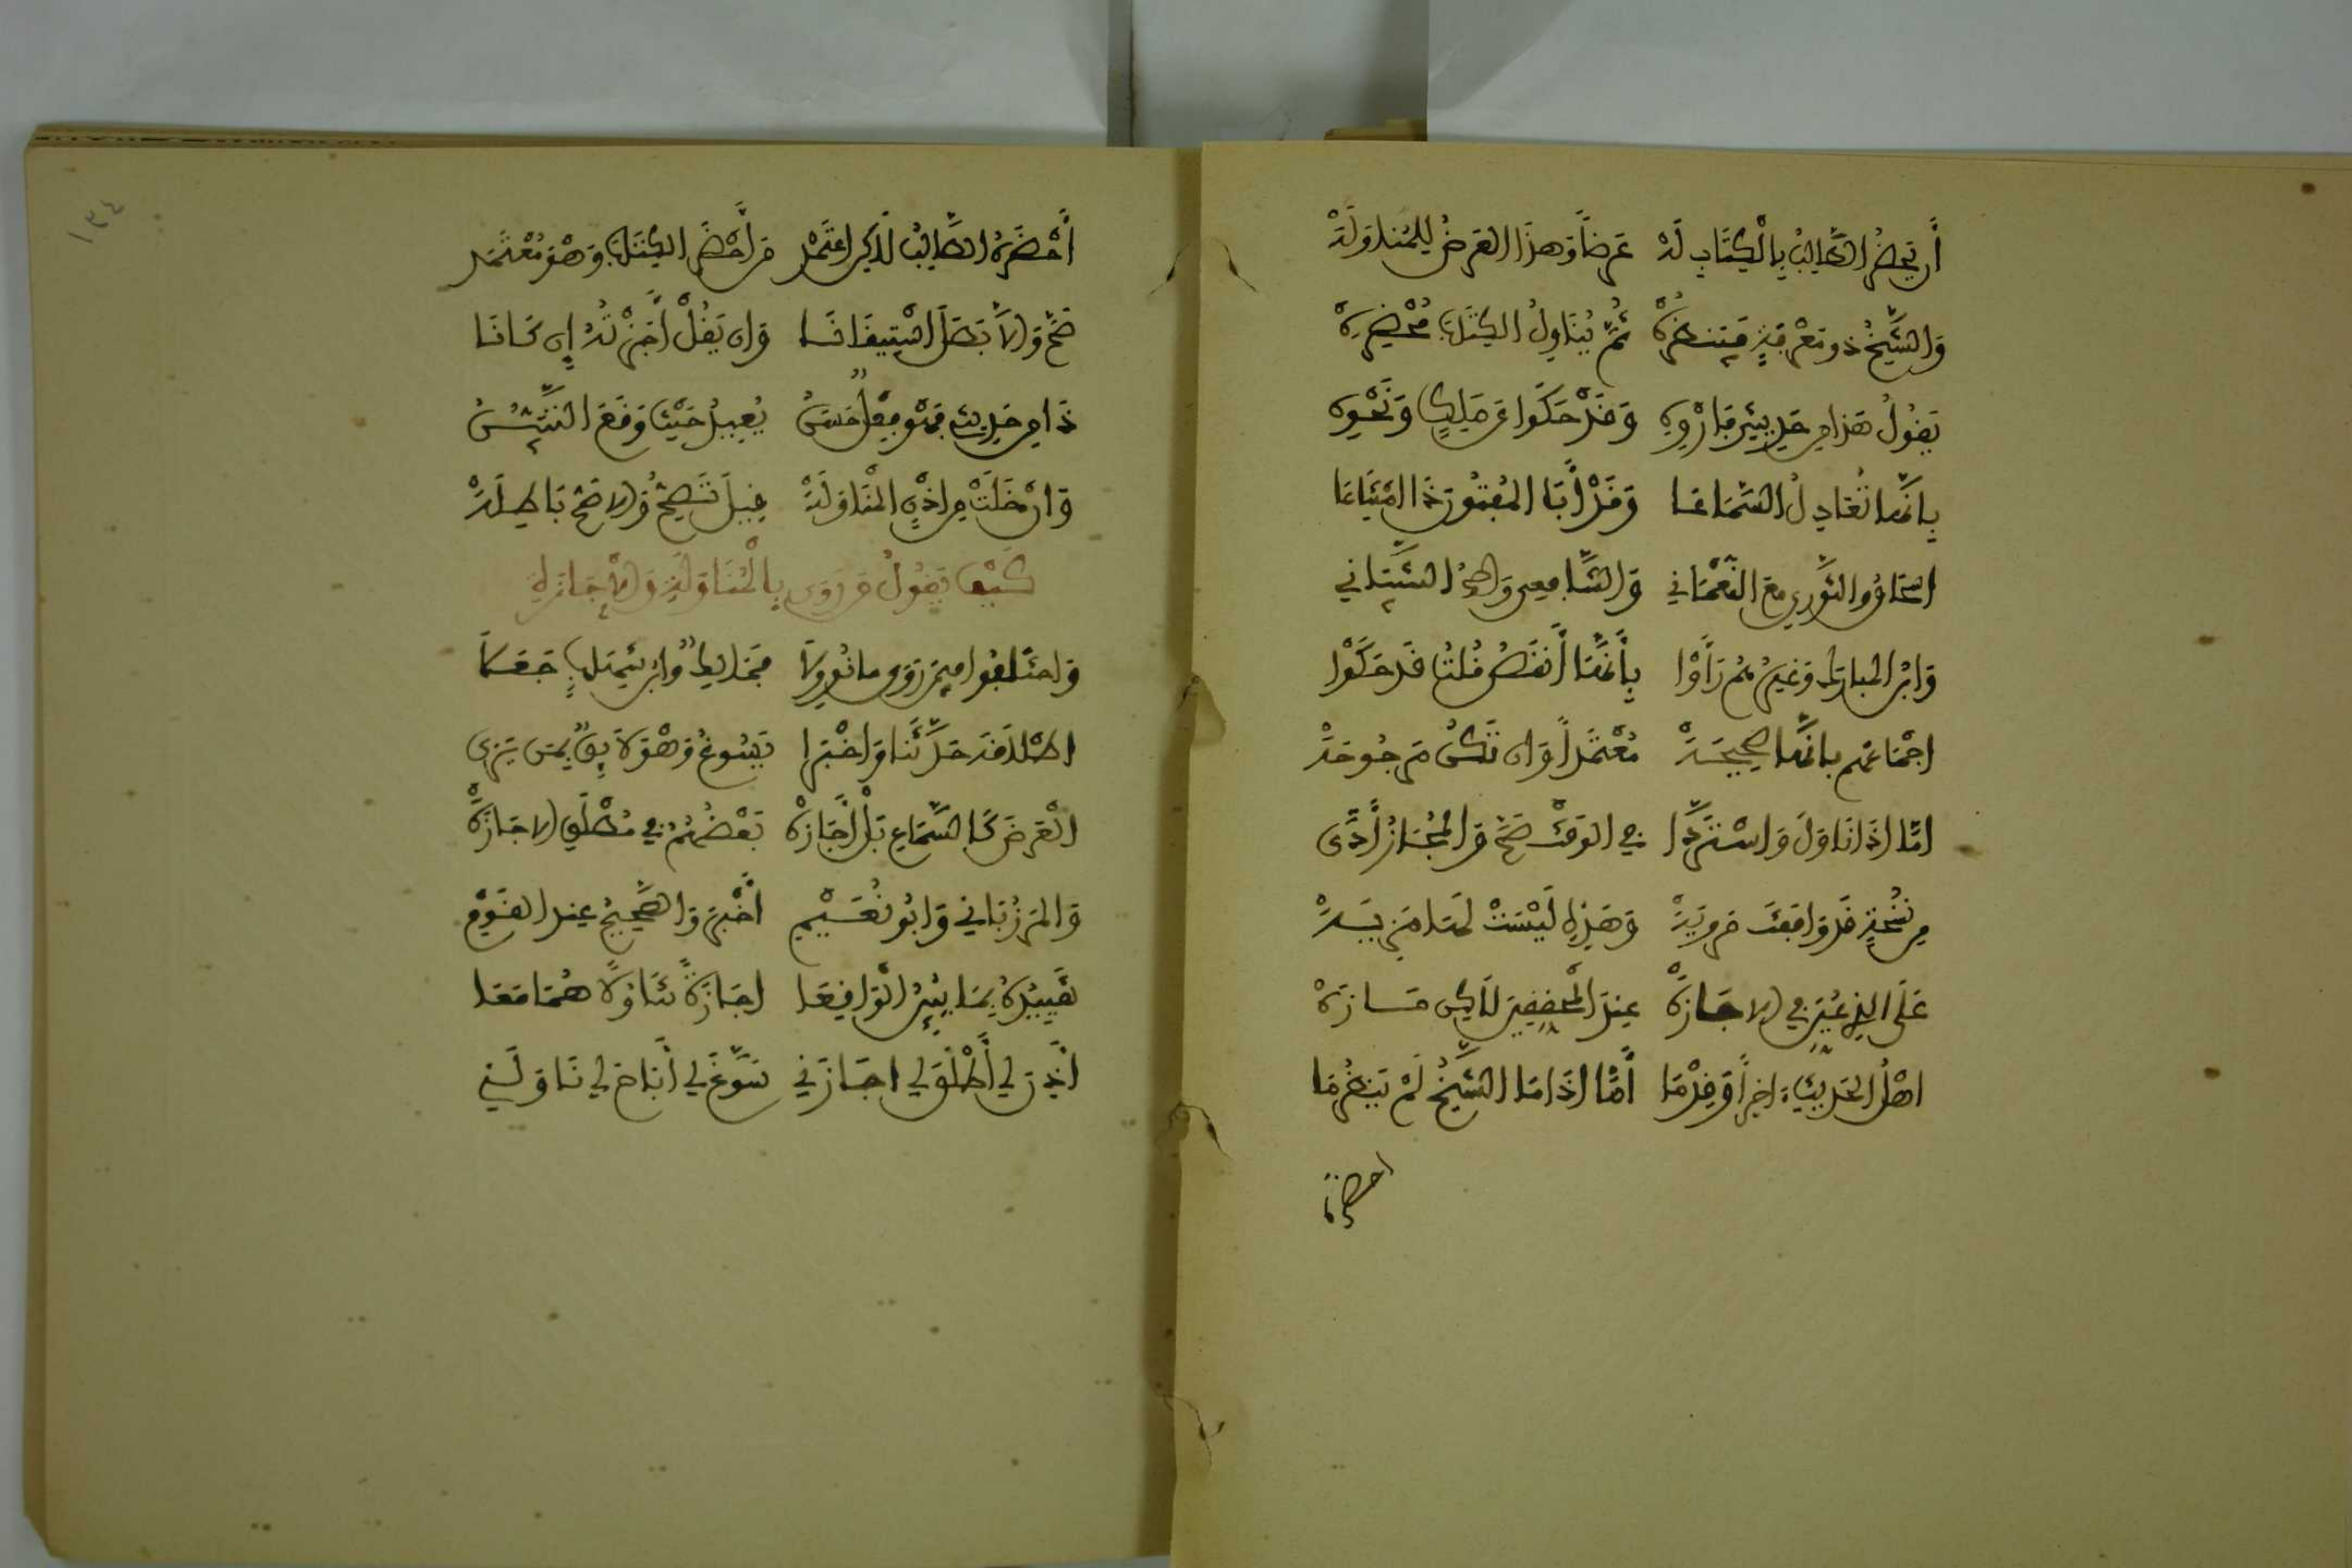 أن يحضر الطالب بالكتاب له عرضا وهذا العرض للمناوله
والشيخ ذو معرفة فينظره ثم يناول الكتاب محضره
يقول هذا من حديثي فاروه وقد حكوا عن مالك ونحوه
بأنها تعادل السماعا وقد أبا المفتون ذا امتناعا
إسحاق والثوري مع النعمان والشافعي وأحمد الشيباني
وابن المبارك وغيرهم رأوا بأنها أنقص قلت قد حكوا
إجماعهم بأنها صحيحه معتمدا وإن تكن مرجوحه
أما إذا ناول واستردا في الوقت صح والمجاز أدى
من نسخة قد وافقت مرويه وهذه ليست لها مزيه
على الذي عين في الاجازه عند المحققين لكن مازه
اهل الحديث اخرا وقدما أما إذا ما الشيخ لم ينظر ما
احضره
١٣٤
أحضره الطالب لكن اعتمد من أحضر الكتاب وهو معتمد
صح والا بطل استيقانا وان يقل أجزته إن كانا
ذا من حديثي فهو فعل حسن يفيد حيث وقع التبين
وان خلت من اذن المناوله قيل تصح والاصح باطله
كيف يقول من روى بالمناولة والاجازة
واختلفوا فيمن روى ما نوولا فمالك وابن شهاب جعلا
اطلاقه حدثنا واخبرا يسوغ وهو لائق بمن يرى
العرض كالسماع بل أجازه بعضهم في مطلق الاجازه
والمرزباني وابو نعيم أخبر والصحيح عند القوم
تقييده بما يبين الواقعا اجازة تناولا هما معا
أذن لي أطلق لي اجازني سوغ لي أباح لي ناولني